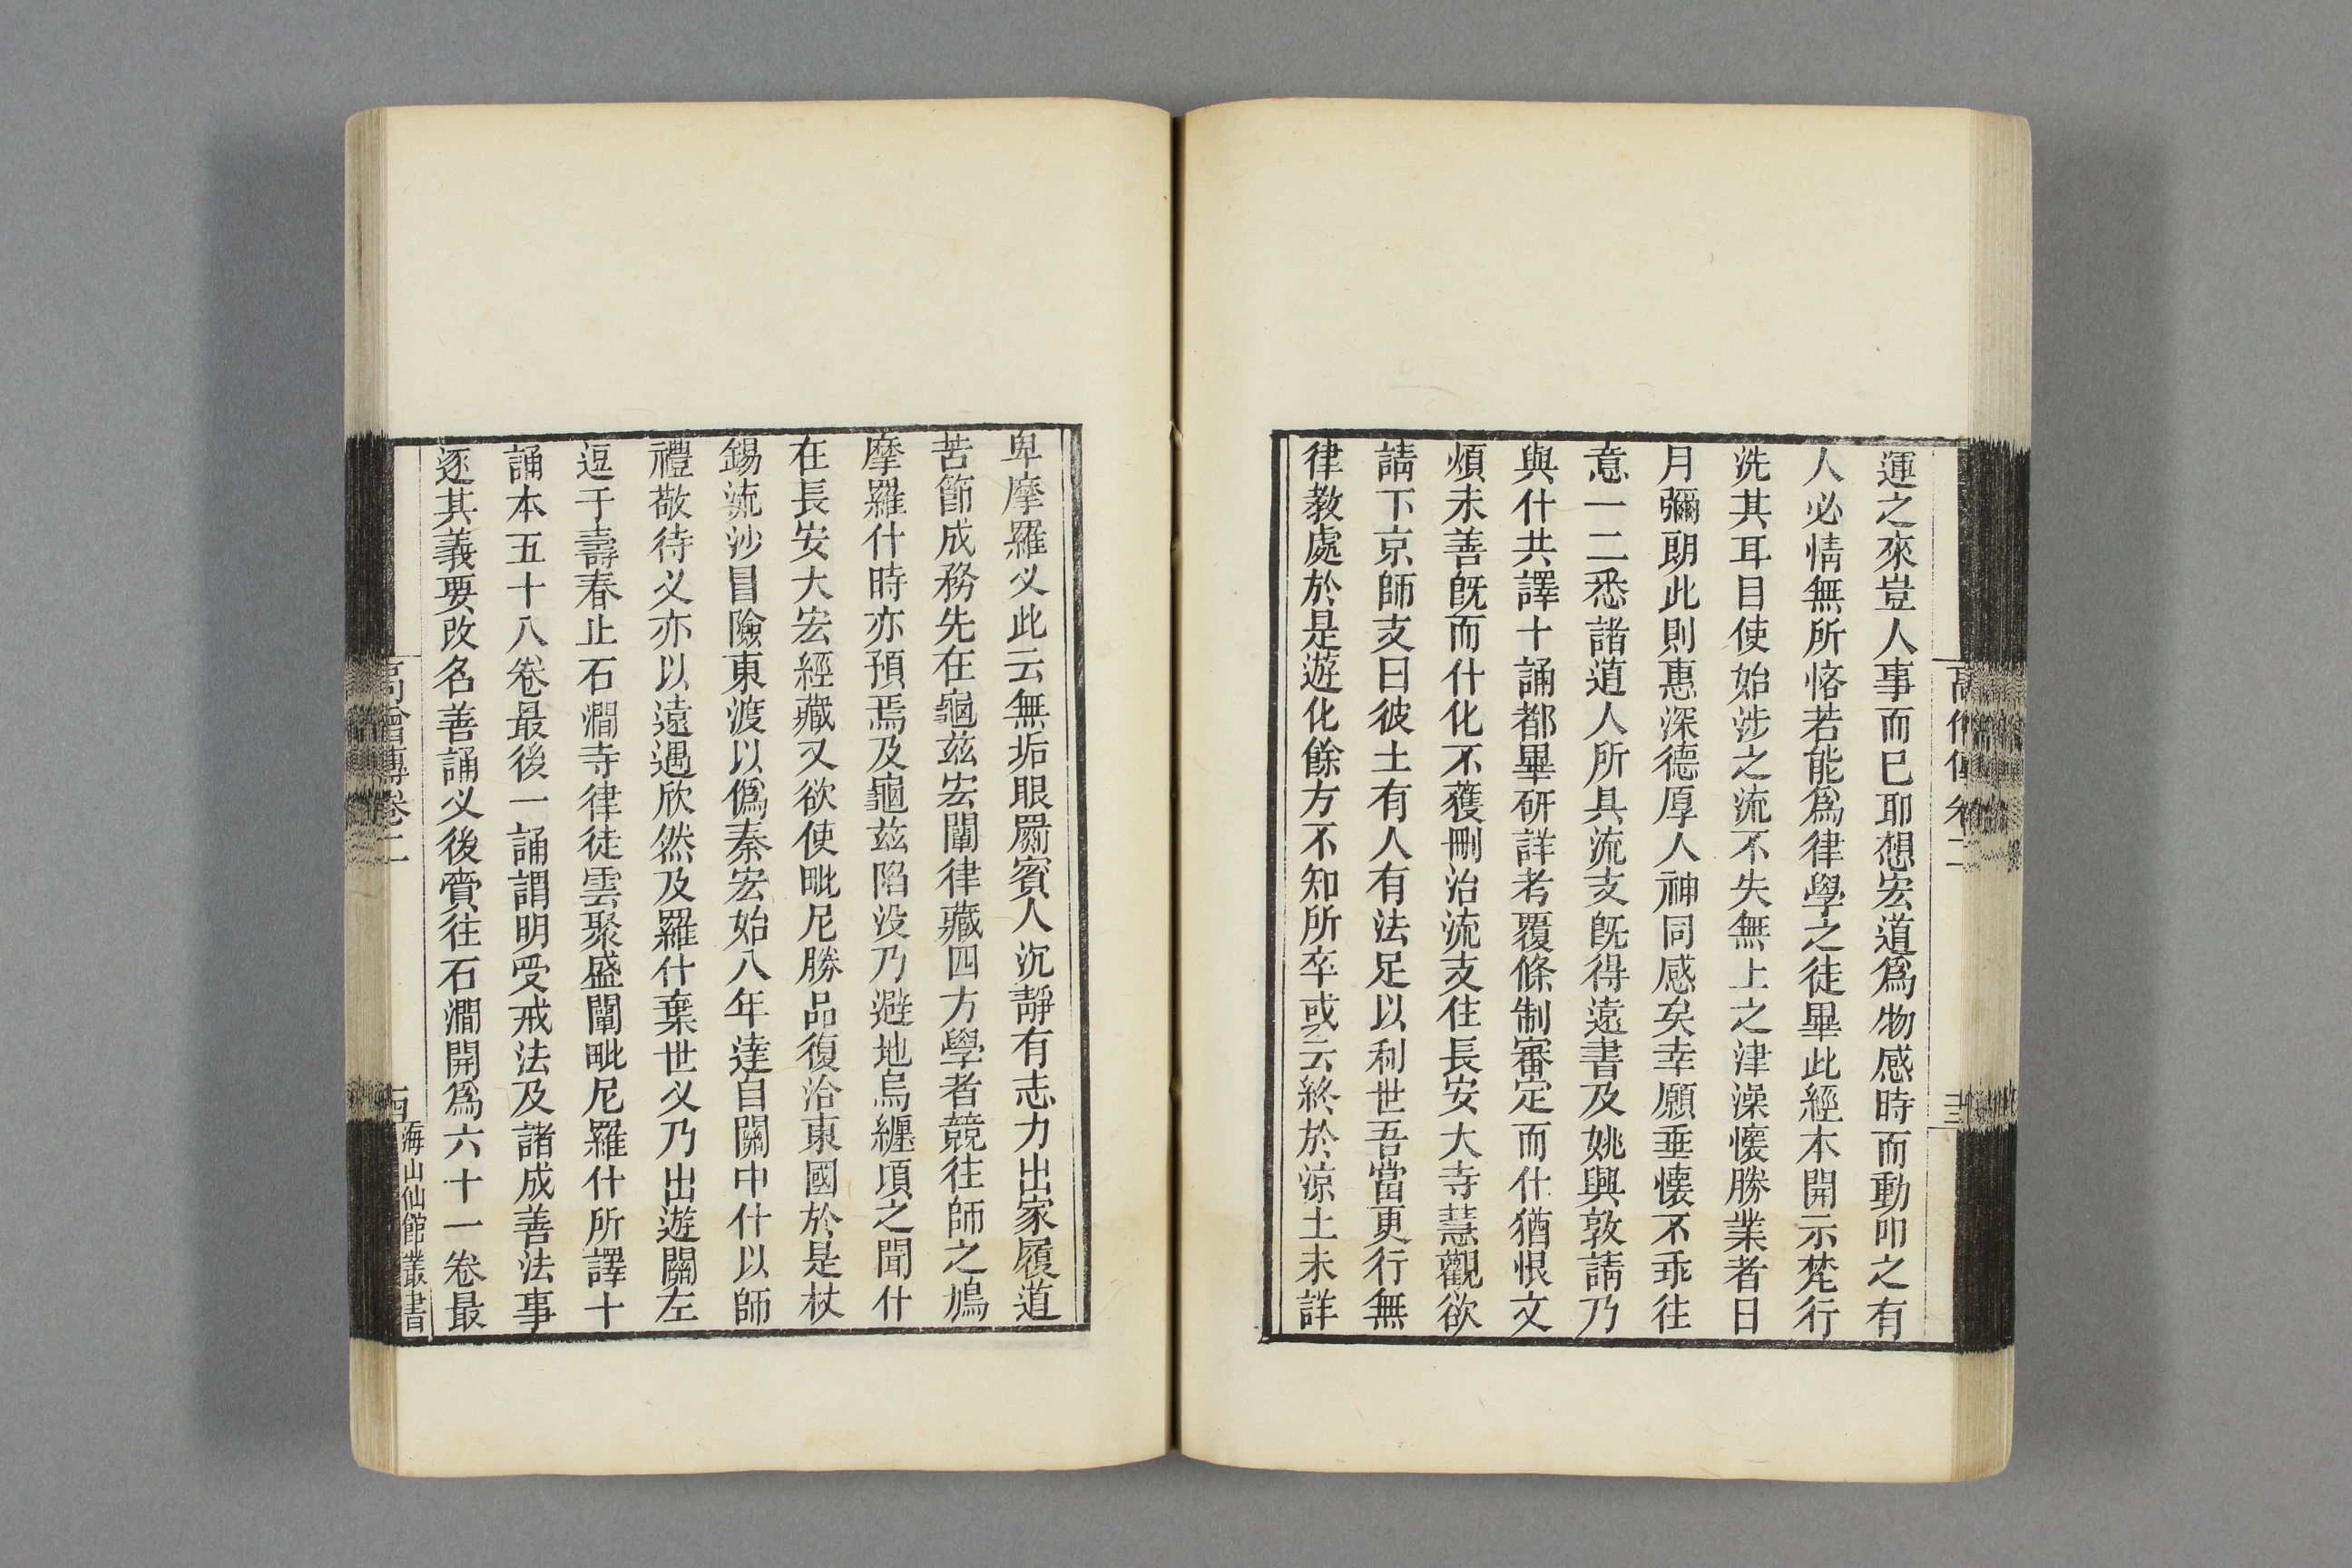 運之來豈人事而已耶想宏道為物感時而動叩之有
人必情無所悋若能為律學之徒畢此經本開示梵行
洗其耳目使始涉之流不失無上之津澡懷勝業者日
月彌朗此則惠深德厚人神同感矣幸願垂懷不乖往
意一二悉諸道人所具流支旣得遠書及姚興敦請乃
與什共譯十誦都畢研詳考覆條制審定而什猶恨文
煩未善旣而什化不獲刪治流支住長安大寺慧觀欲
請下京師支曰彼土有人有法足以利世吾當更行無
律教處於是遊化餘方不知所卒或云終於涼土未詳
卑摩羅义此云無垢眼罽賓人沉靜有志力出家履道
苦節成務先在龜茲宏闡律藏四方學者競往師之鳩
摩羅什時亦預焉及龜茲陷没乃避地烏纏頃之聞什
在長安大宏經藏又欲使毗尼勝品復洽東國於是杖
錫流沙冒險東渡以偽秦宏始八年達自關中什以師
禮敬待义亦以遠遇欣然及羅什棄世义乃出遊關左
逗于壽春止石澗寺律徒雲聚盛闡毗尼羅什所譯十
誦本五十八卷最後一誦謂明受戒法及諸成善法事
逐其義要改名善誦义後賷往石澗開為六十一卷最
高僧傳卷二
海山仙館叢書